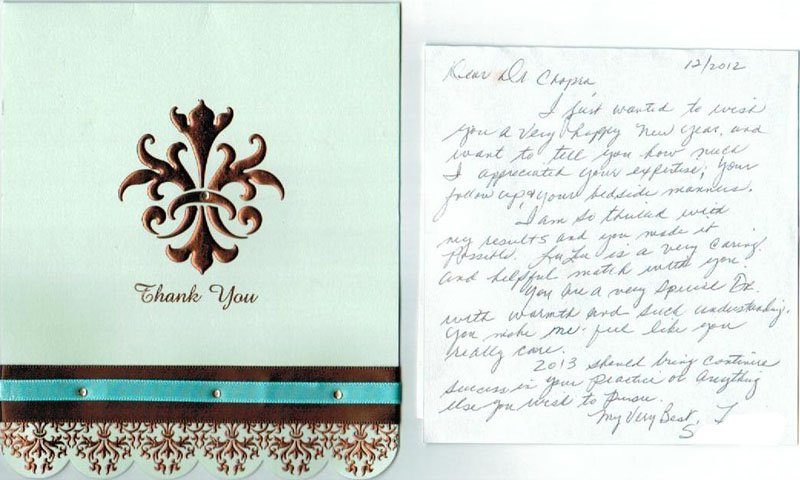 Thank You
12/2012
Dear Dr Chopra
I just wanted to wish
you a very happy New Year, and
want to tell you how much
I appreciated your expertise, your
follow up & your bedside manners.
I am so thrilled with
my results and you made it
possible. LuLu is a very caring
and helpful match with you.
You are a very special Dr.
with warmth and such understanding.
You make me feel like you
really care.
2013 should bring continue
success in your practice or anything
else you wish to pursue.
My Very Best,
S